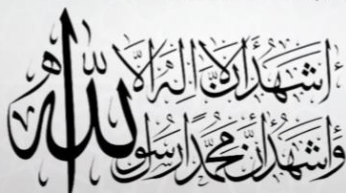 أَشْهَدُ أَنْ لَا إِلٰهَ إِلَّا الله
وَأَشْهَدُ أَنَّ مُحَمَّدًا رَسُولُ الله